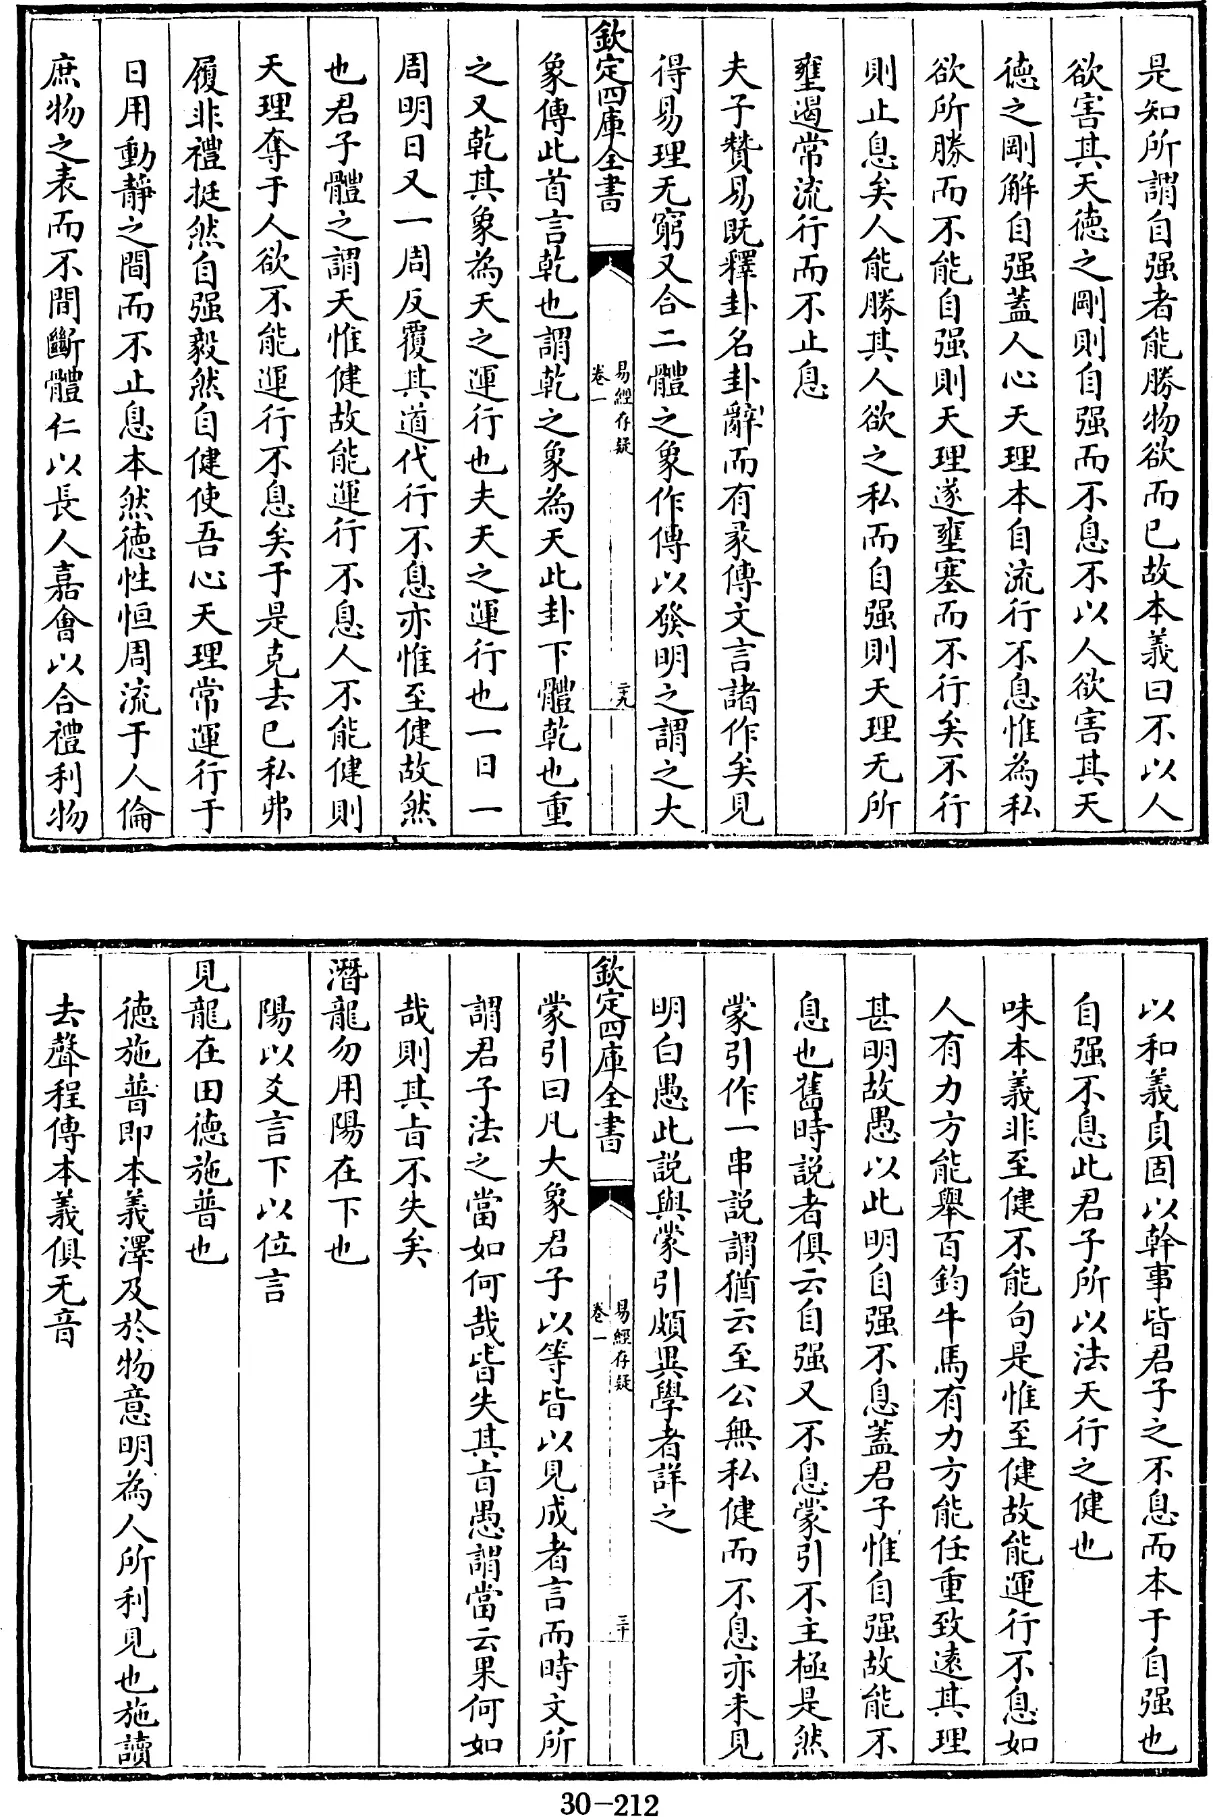 是知所謂自强者能勝物欲而已故本義曰不以人
欲害其天德之剛則自强而不息不以人欲害其天
德之剛解自强蓋人心天理本自流行不息惟為私
欲所勝而不能自强則天理遂壅塞而不行矣不行
則止息矣人能勝其人欲之私而自强則天理无所
壅遏常流行而不止息
夫子贊易既釋卦名卦辭而有彖傳文言諸作矣見
得易理无窮又合二體之象作傳以發明之謂之大
欽定四庫全書
易經存疑
卷一
二九
象傳此首言乾也謂乾之象為天此卦下體乾也重
之又乾其象為天之運行也夫天之運行也一日一
周明日又一周反覆其道代行不息亦惟至健故然
也君子體之謂天惟健故能運行不息人不能健則
天理奪于人欲不能運行不息矣于是克去已私弗
履非禮挺然自强毅然自健使吾心天理常運行于
日用動靜之間而不止息本然德性恒周流于人倫
庶物之表而不間斷體仁以長人嘉會以合禮利物
以和義貞固以幹事皆君子之不息而本于自强也
自强不息此君子所以法天行之健也
味本義非至健不能句是惟至健故能運行不息如
人有力方能舉百鈞牛馬有力方能任重致遠其理
甚明故愚以此明自强不息蓋君子惟自强故能不
息也舊時説者俱云自强又不息蒙引不主極是然
蒙引作一串説謂猶云至公無私健而不息亦未見
明白愚此説與蒙引頗異學者詳之
欽定四庫全書
易經存疑
卷一
三十
蒙引曰凡大象君子以等皆以見成者言而時文所
謂君子法之當如何哉皆失其旨愚謂當云果何如
哉則其旨不失矣
潛龍勿用陽在下也
陽以爻言下以位言
見龍在田德施普也
德施普即本義澤及於物意明為人所利見也施讀
去聲程傳本義俱无音
30-212